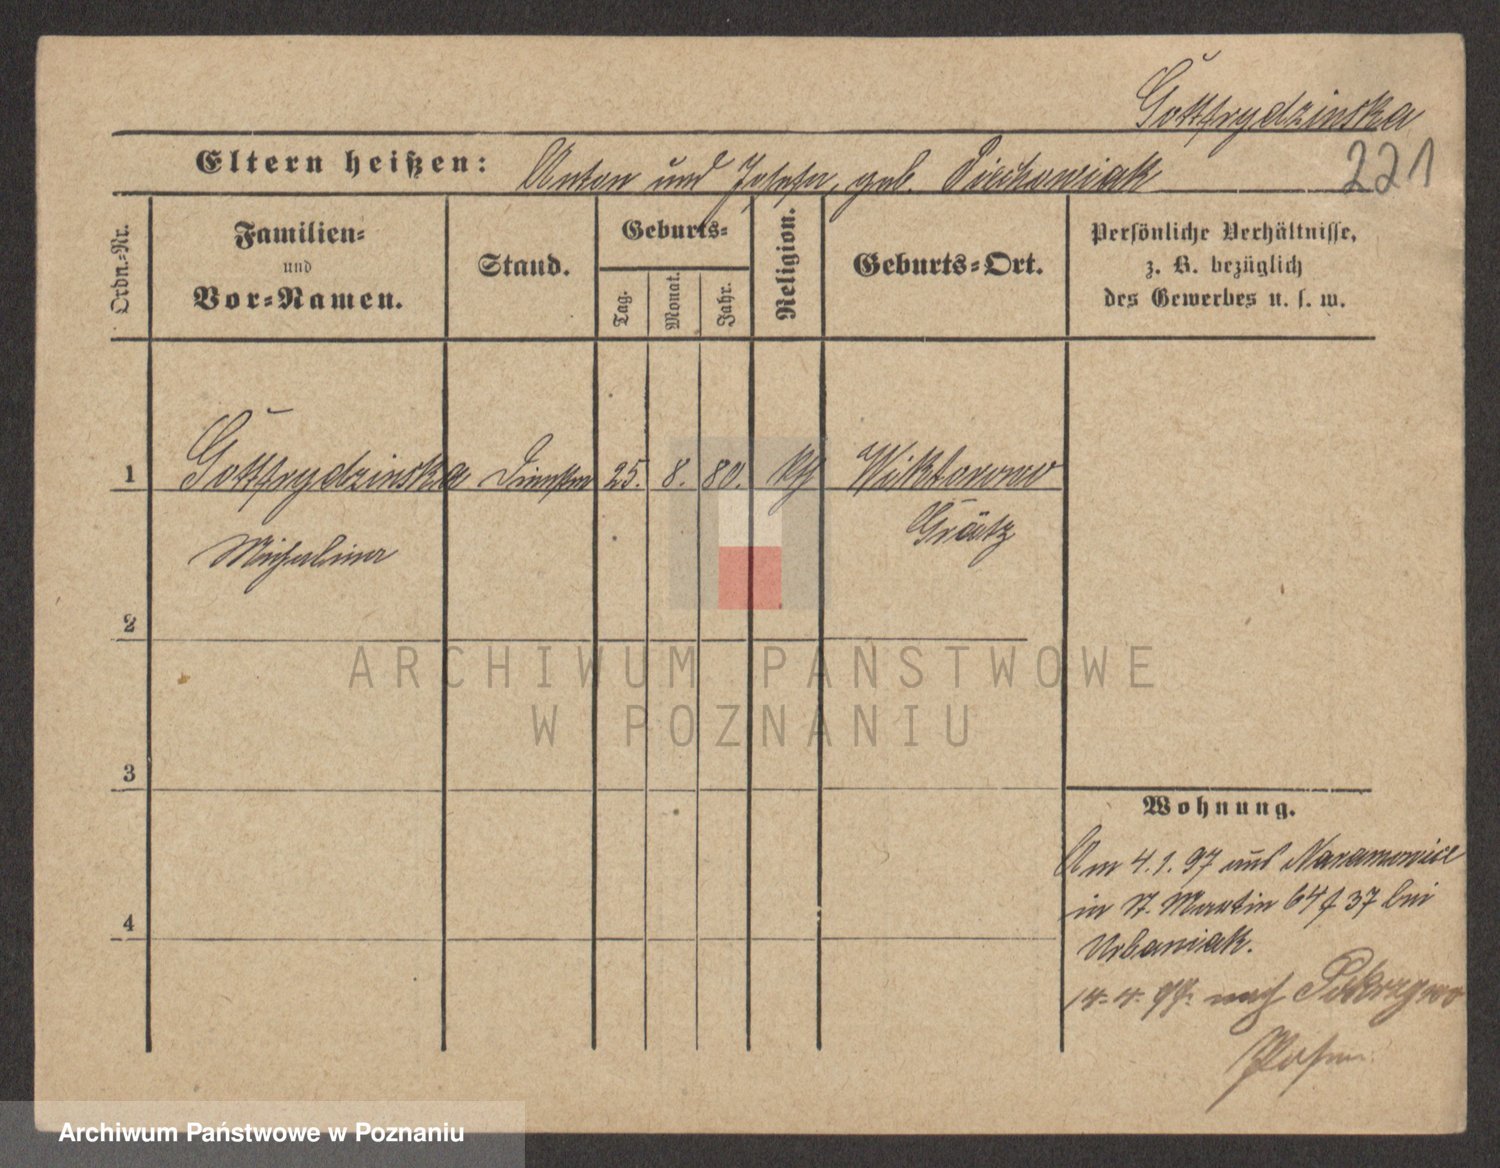 Gottfrydzinska
Eltern heißen: Anton und Josefa, geb. Piechowiak
221
Ordn.-Nr.
Familien-
und
Vor-Namen.
Stand.
Geburts-
Tag.
Monat.
Jahr.
Religion.
Geburts-Ort.
Persönliche Verhältnisse,
z. B. bezüglich
des Gewerbes u. s. w.
1 Gottfrydzinska 25. 8. 80. kth Wiktorowo
Grätz
Michalina
2
3
4
Wohnung.
Am 4.1.97 aus Naramowice
in St. Martin 64 37 bei
Urbaniak.
14.4. nach
Posen.
ARCHIWUM PAŃSTWOWE
W POZNANIU
Archiwum Państwowe w Poznaniu